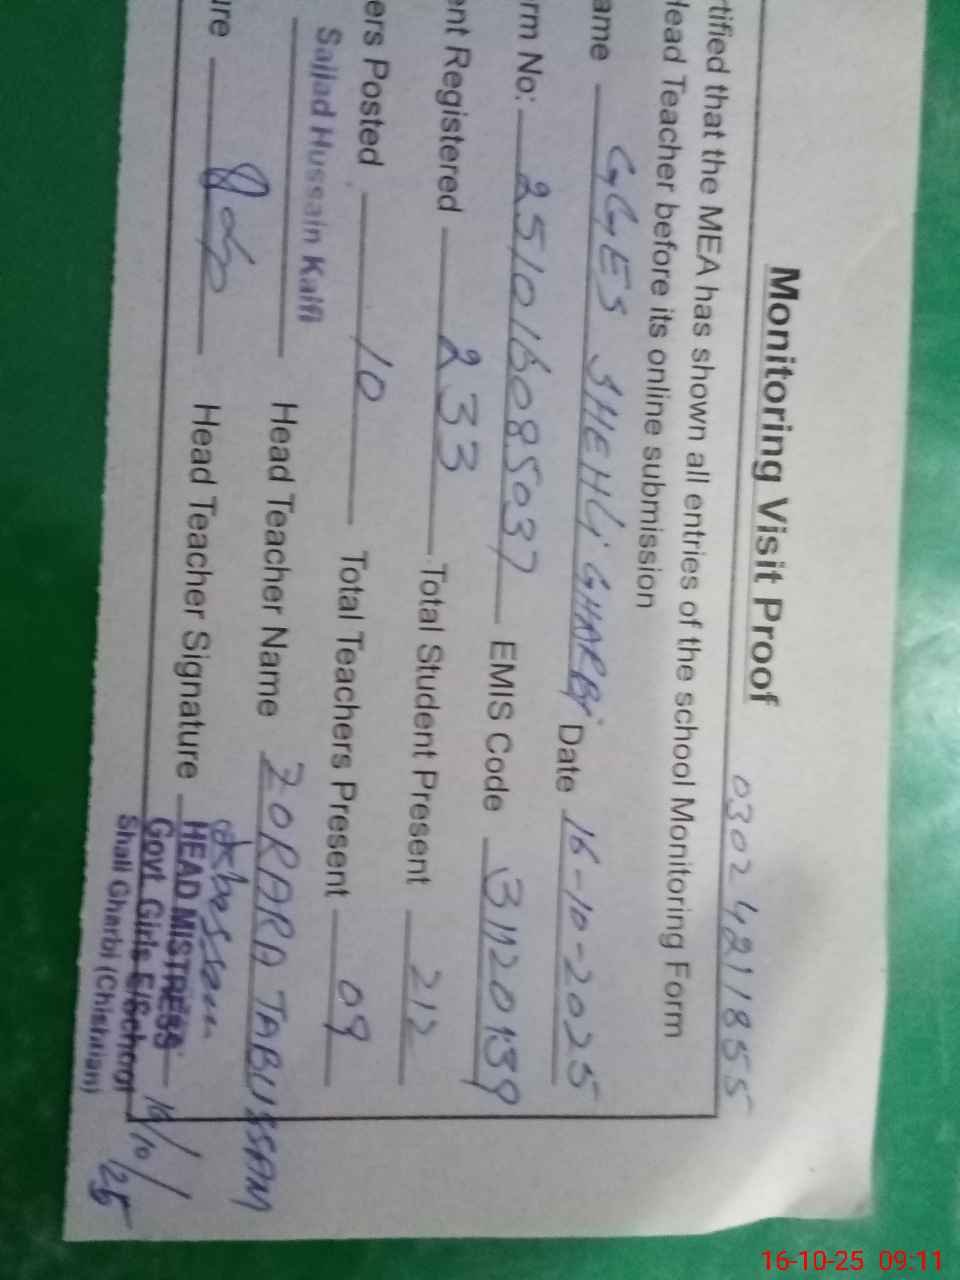 Monitoring Visit Proof 0302 4211855
rtified that the MEA has shown all entries of the school Monitoring Form
Head Teacher before its online submission
ame GGES SHEHLi GHARBi Date 16-10-2025
rm No: 251016085037 EMIS Code 31120139
ent Registered 233 Total Student Present 212
ers Posted 10 Total Teachers Present 09
Sajjad Hussain Kaifi Head Teacher Name ZORARA TABUSSAM
ure Head Teacher Signature
HEAD MISTRESS
Govt. Girls E/School
Shali Gharbi (Chishtian)
16/10/25
16-10-25 09:11